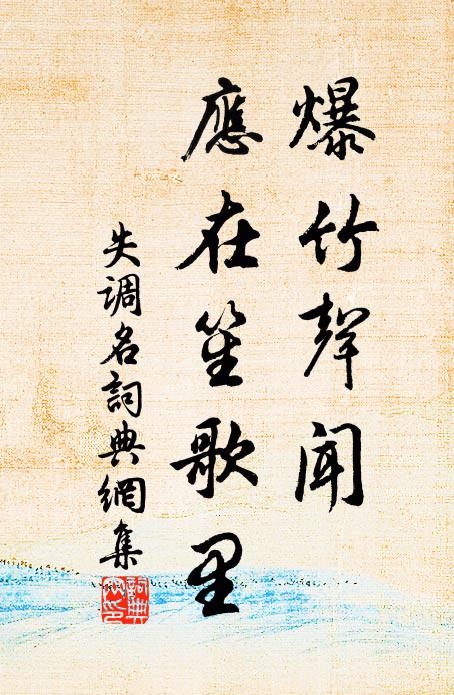 爆竹聲聞
應在笙歌里
失調名詞典網集